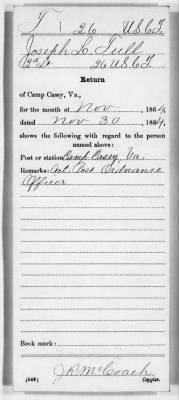 T | 26 | U.S.C.T.
Joseph L. Tull
2d Lt, 26 U.S.C.T.
Return
of Camp Casey, Va.,
for the month of Nov, 1864,
dated Nov 30, 1864,
shows the following with regard to the person
named above:
Post or station Camp Casey, Va.
Remarks: Act. Post Ordnance
Officer
Book mark:
J.R. McCoach
(549) Copyist.